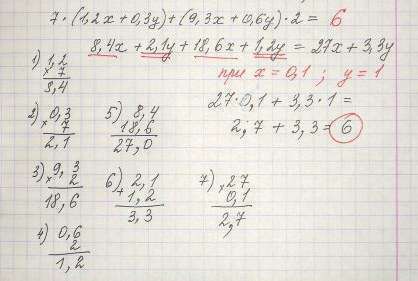 7·(1,2x+0,3y)+(9,3x+0,6y)·2= 6
8,4x+2,1y+18,6x+1,2y = 27x+3,3y
при x=0,1 ; y=1
27·0,1 + 3,3·1 =
2,7 + 3,3 = 6
1) 1,2
× 7
8,4
2) 0,3
× 7
2,1
3) 9,3
× 2
18,6
4) 0,6
2
1,2
5) 8,4
18,6
27,0
6) 2,1
+ 1,2
3,3
7) × 27
0,1
2,7